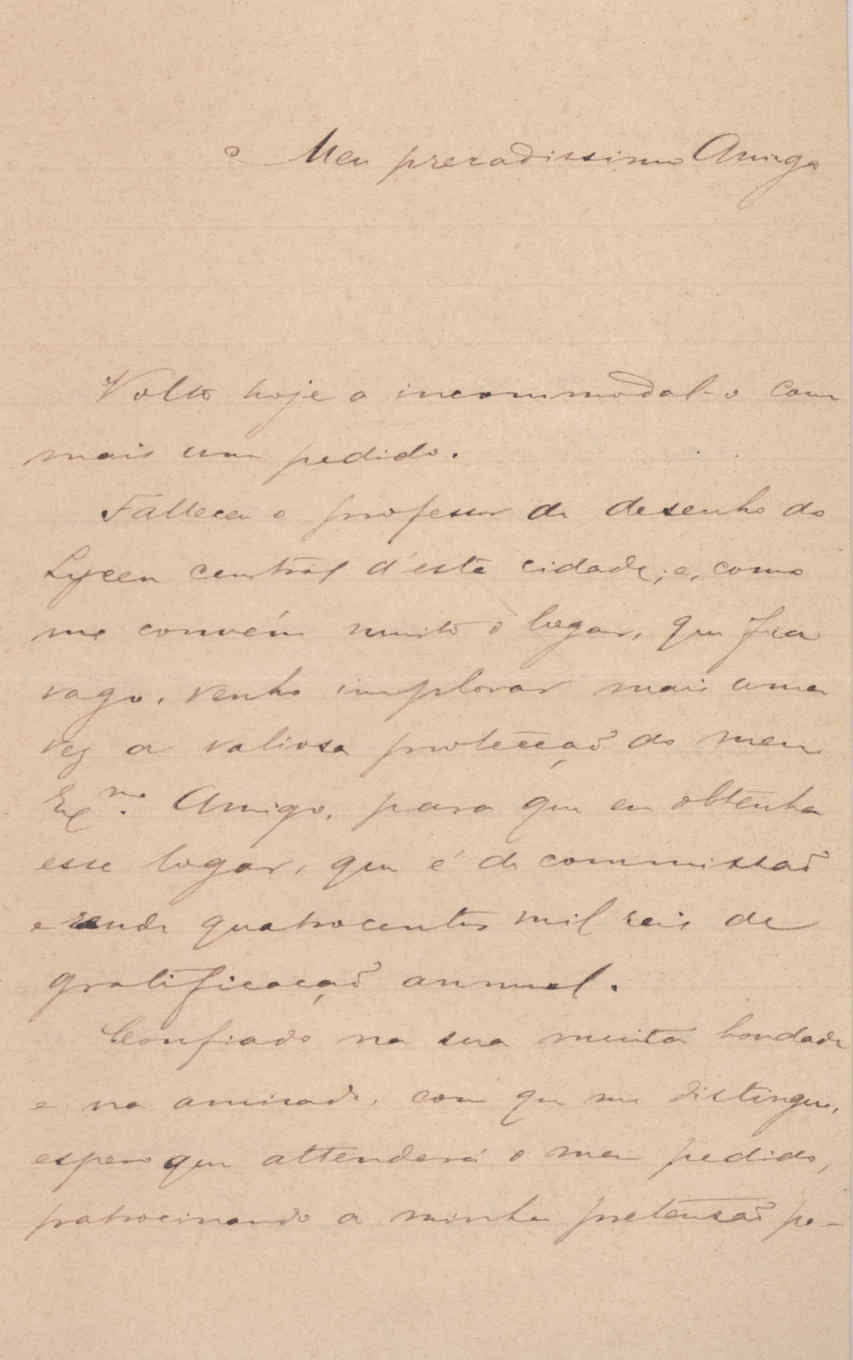 Meu presadissimo Amigo
Volto hoje a incommodal-o com
mais um pedido.
Falleceu o professor de desenho do
Lyceu central d'esta cidade; e, como
me convém muito o logar, que fica
vago, venho implorar mais uma
vez a valiosa protecçaõ do meu
Exmo. Amigo, para que eu obtenha
esse logar, que é de commissaõ
e rende quatrocentos mil reis de
gratificaçaõ annual.
Confiado na sua muita bondade
e na amisade, com que me distingue,
espero que attenderá o meu pedido,
patrocinando a minha pretensaõ pe-